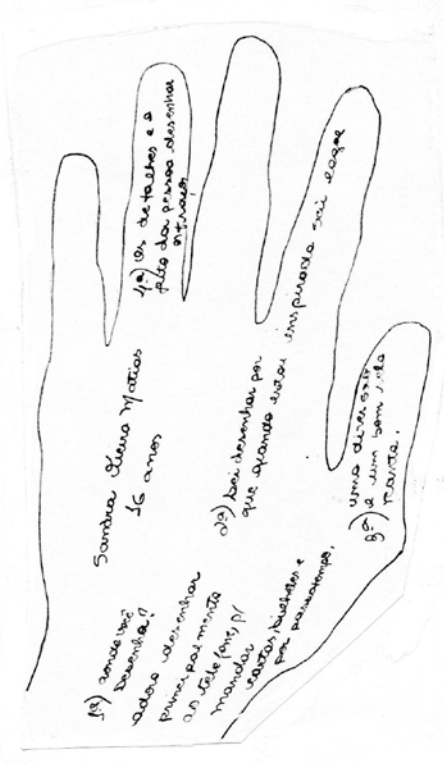 Sandra Vieira Matias
16 anos
1ª) aonde você
desenha?
adoro desenhar
principalmente
ao telefone, p/
mandar
cartas, bilhetes e
por passatempo.
2ª) Sei desenhar por
que quando estou inspirada sai legal
3ª) uma diversão
e um bom
4ª) Os detalhes e o
jeito da pessoa desenhar